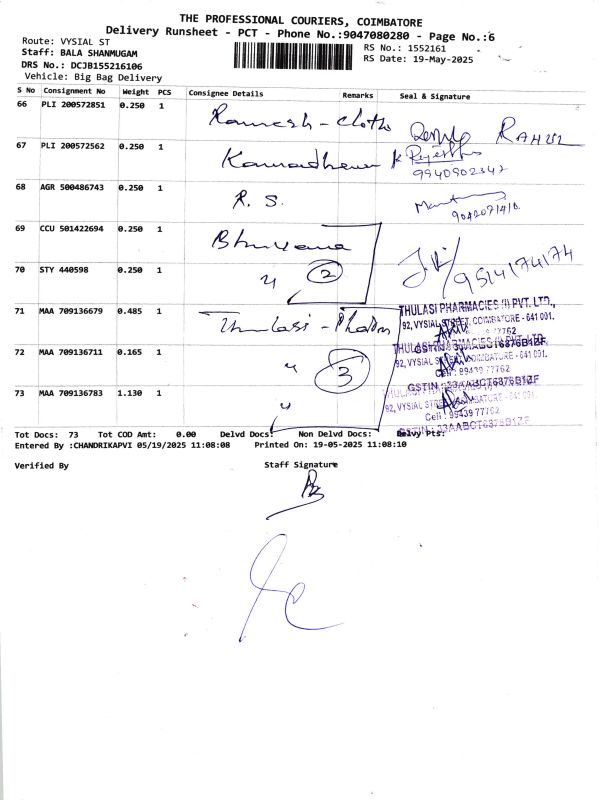 THE PROFESSIONAL COURIERS, COIMBATORE
Delivery Runsheet - PCT - Phone No.:9047080280 - Page No.:6
Route: VYSIAL ST
RS No.: 1552161
Staff: BALA SHANMUGAM
RS Date: 19-May-2025
DRS No.: DCJB155216106
Vehicle: Big Bag Delivery
S No Consignment No Weight PCS Consignee Details Remarks Seal & Signature
66 PLI 200572851 0.250 1 Ramesh - Cloths RAHUL
67 PLI 200572562 0.250 1 K
9940902342
68 AGR 500486743 0.250 1 R. S.
69 CCU 501422694 0.250 1 Bhuvana
9514174174
70 STY 440598 0.250 1 " 2
71 MAA 709136679 0.485 1 Thulasi - Pharm
THULASI PHARMACIES (I) PVT. LTD.,
92, VYSIAL STREET, COIMBATORE - 641 001.
72 MAA 709136711 0.165 1 " 3
Cell : 99439 77762
73 MAA 709136783 1.130 1 "
GSTIN : 33AABCT6376B1ZF
92, VYSIAL STREET, COIMBATORE - 641 001.
Cell : 99439 77762
GSTIN : 33AABCT6376B1ZF
Tot Docs: 73 Tot COD Amt: 0.00 Delvd Docs: Non Delvd Docs: Delvy Pts:
Entered By :CHANDRIKAPVI 05/19/2025 11:08:08 Printed On: 19-05-2025 11:08:10
Verified By Staff Signature